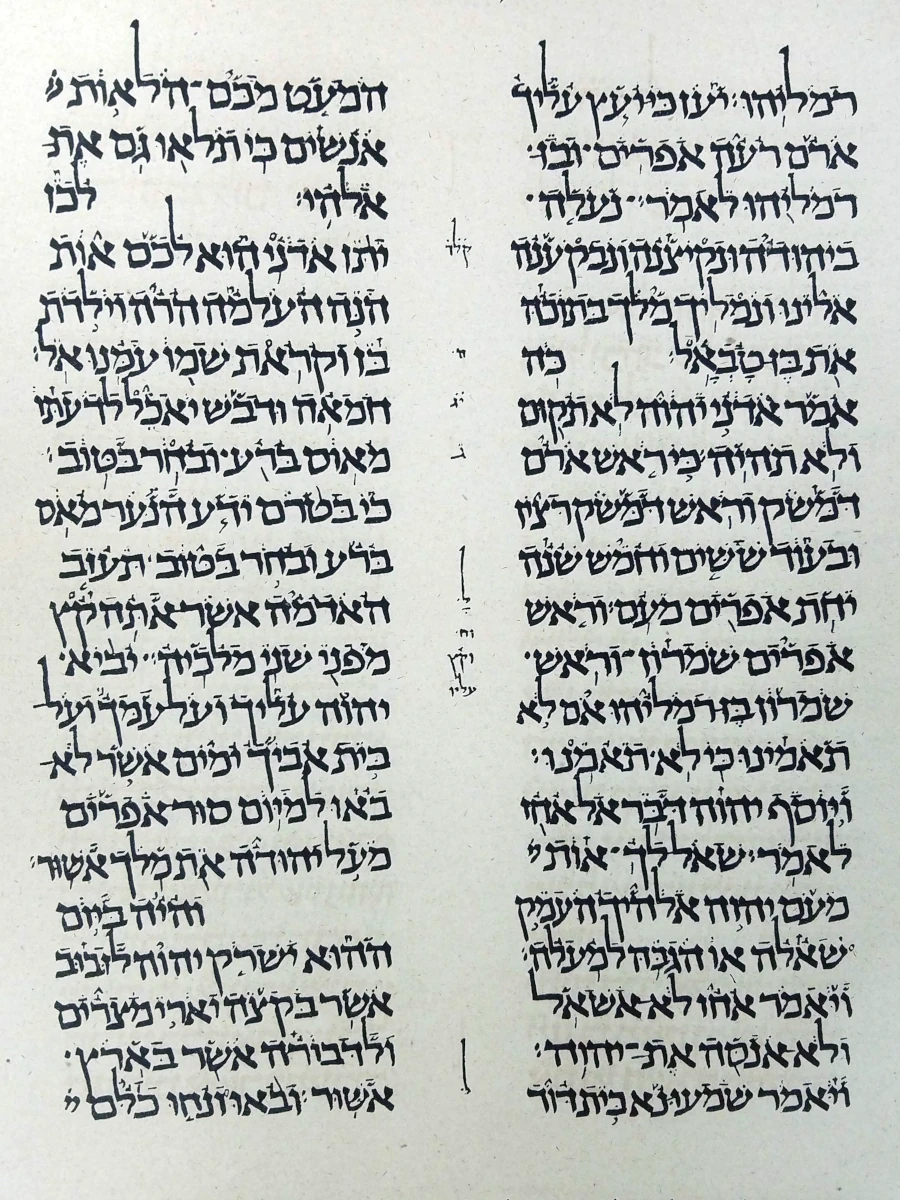 רמליהו יען כי יעץ עליך
ארם רעה אפרים ובן
רמליהו לאמר נעלה
ביהודה ונקיצנה ונבקענה
אלינו ונמליך מלך בתוכה
את בן טָבְאַל כה
אמר אדני יהוה לא תקום
ולא תהיה כי ראש ארם
דמשק וראש דמשק רצין
ובעוד ששים וחמש שנה
יחת אפרים מעם וראש
אפרים שמרון וראש
שמרון בן רמליהו אם לא
תאמינו כי לא תאמנו
ויוסף יהוה דבר אל אחז
לאמר שאל לך אות
מעם יהוה אלהיך העמק
שאלה או הגבה למעלה
ויאמר אחז לא אשאל
ולא אנסה את יהוה
ויאמר שמעו נא בית דוד
ח
יג
ג
ל
עליו
ל
המעט מכם הלאות
אנשים כי תלאו גם את
אלהי לכן
יתן אדני הוא לכם אות
הנה העלמה הרה וילדת
בן וקראת שמו עמנו אל
חמאה ודבש יאכל לדעתו
מאוס ברע ובחר בטוב
כי בטרם ידע הנער מאס
ברע ובחר בטוב תעזב
האדמה אשר אתה קץ
מפני שני מלכיה יביא
יהוה עליך ועל עמך ועל
בית אביך ימים אשר לא
באו למיום סור אפרים
מעל יהודה את מלך אשור
והיה ביום
ההוא ישרק יהוה לזבוב
אשר בקצה יארי מצרים
ולדבורה אשר בארץ
אשור ובאו ונחו כלם